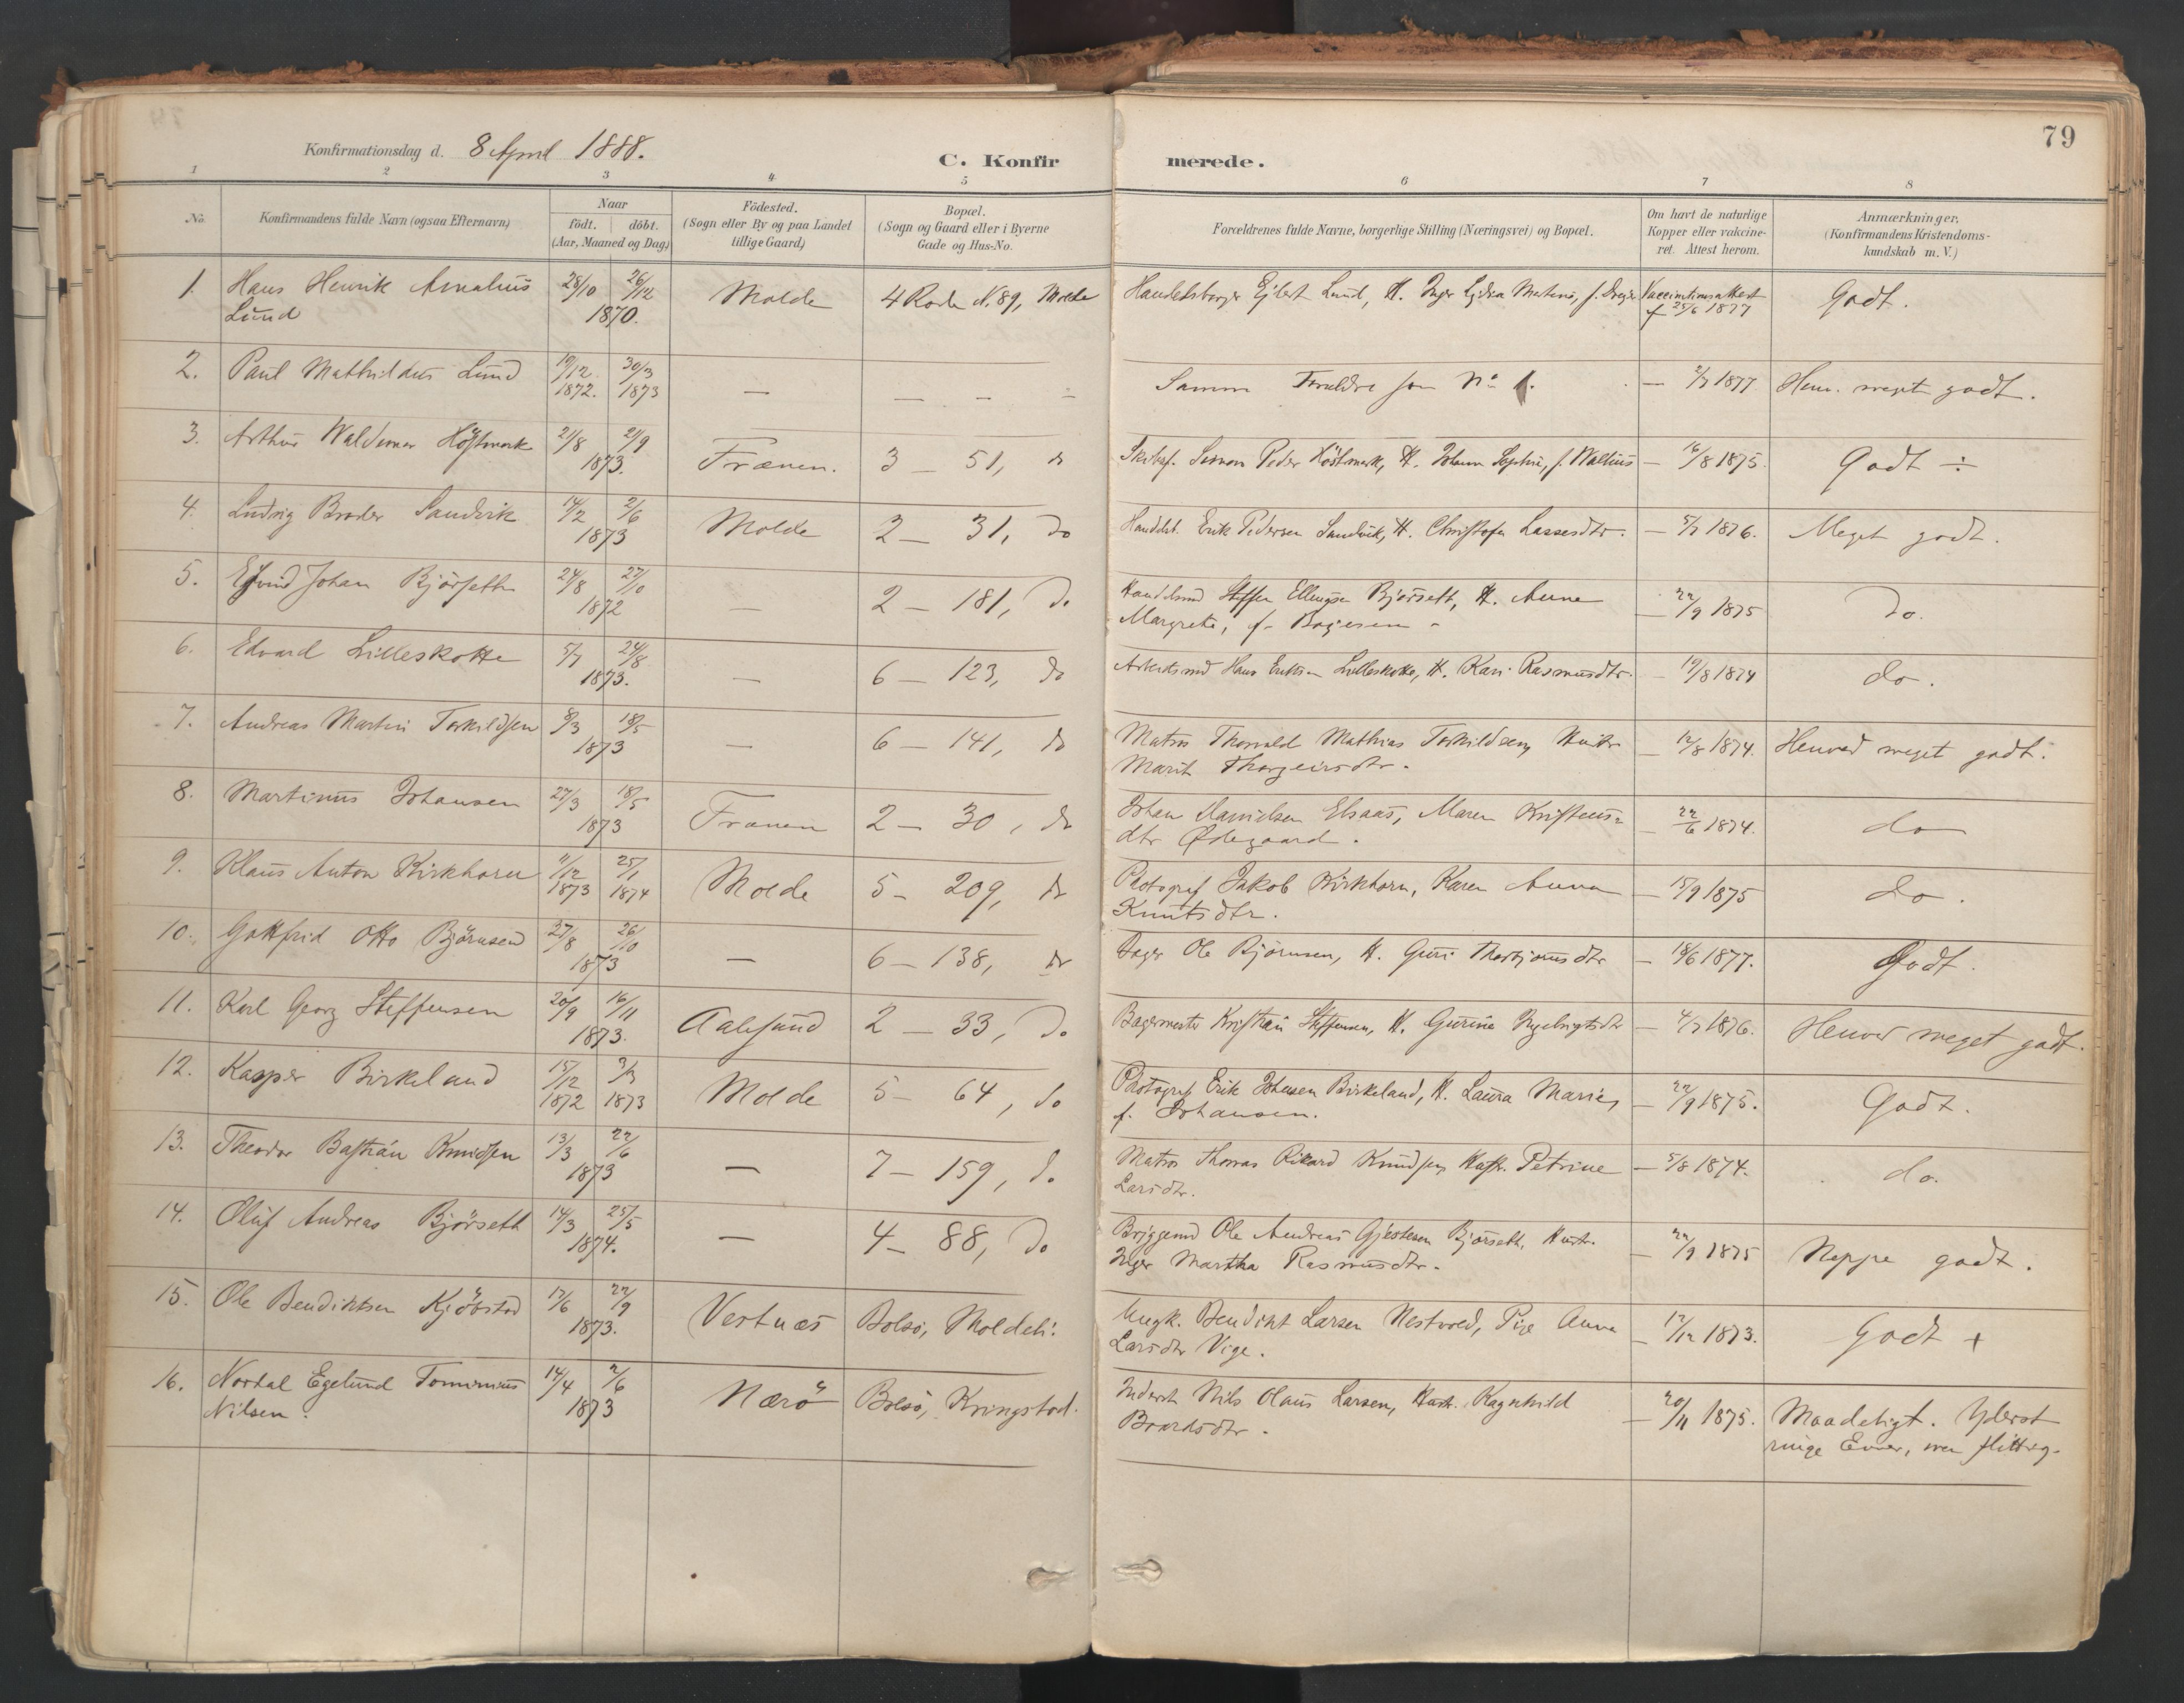 79
Konfirmationsdag d. 8 April 1888.
C. Konfirmerede.
1 2 3 4 5 6 7 8
No.
Konfirmandens fulde Navn (ogsaa Efternavn)
Naar
født. | döbt.
(Aar, Maaned og Dag)
Födested.
(Sogn eller By og paa Landet
tillige Gaard)
Bopæl.
(Sogn og Gaard eller i Byerne
Gade og Hus-No.
Forældrenes fulde Navne, borgerlige Stilling (Næringsvei) og Bopæl.
Om havt de naturlige
Kopper eller vakcine-
ret. Attest herom.
Anmærkninger,
(Konfirmandens Kristendoms-
kundskab m. V.)
1. Hans Henrik Lund 28/10 26/12 1870. Molde 4 Rode N. 89, Molde Ejlert Lund, H. Inger Lydia 25/6 1877 Godt.
2. Paul Mathildus Lund 19/12 1872. 30/3 1873 — — — — Samme Forældre som No 1. — 2/7 1877 Henv. meget godt.
3. Arthur Waldemar Höstmark 21/8 21/9 1873. Frænen. 3 — 51, do Simon Peder Höstmark, H. — 16/8 1875. Godt ÷
4. Ludvig Broder Sandvik 14/2 2/6 1873 Molde 2 — 31, do Erik Pedersen Sandvik, H. Lassesdtr. — 5/7 1876. Meget godt.
5. Johan Bjørseth 24/8 27/10 1872 — 2 — 181, do Steffen Ellingsen Bjørseth, H. Anne
Margrete, f. — 22/9 1875 do.
6. Edvard Lilleskotte 5/7 24/8 1873. — 6 — 123, do Hans Lilleskotte, H. Kari Rasmusdtr. — 19/8 1874 do.
7. Andreas Martin Torkildsen 8/3 18/5 1873 — 6 — 141, do Matros Thorvald Mathias Torkildsen, Hustr.
Marit Thorgeirsdtr. — 12/8 1874. Henved meget godt.
8. Martinus Johansen 27/3 18/5 1873 Frænen 2 — 30, do Johan Danielsen Elsaas, Maren Kristens-
dtr Ødegaard. — 22/6 1874. do
9. Klaus Anton Kirkhorn 2/12 1873 25/1 1874 Molde 5 — 209, do Photograf Jakob Kirkhorn, Karen Anna
Knutsdtr. — 15/9 1875 do.
10. Gottfrid Otto Björnsen 27/8 26/10 1873 — 6 — 138, do Ole Björnsen, H. Guri — 18/6 1877. Godt.
11. Karl Georg Steffensen 20/9 16/11 1873. Aalesund 2 — 33, do Bagermester Kristian Steffensen, H. Gurine Ingebrigtsdtr — 4/7 1876. Henved meget godt.
12. Kasper Birkeland 15/12 1872 1873 Molde 5 — 64, do Photograf Erik Johnsen Birkeland, H. Laura Marie,
f. Johansen. — 22/9 1875. Godt.
13. Theodor Bastian Knudsen 13/3 22/6 1873 — 7 — 159, do Matros Thomas Rikard Knudsen, Hustr. Petrine
Larsdtr. — 5/8 1874. do.
14. Oluf Andreas Bjørseth 14/3 25/5 1874. — 4 — 88, do Ole Andreas Bjørseth, Hustr.
Inger Martha Rasmusdtr. — 22/9 1875 Neppe godt.
15. Ole Bendiktsen Kjöbstad 17/6 22/9 1873. Vestnæs Bolsö, Moldeli. Ungk. Bendikt Larsen Nestvold, Pige Anne
Larsdtr Vige. — 17/12 1873. Godt +
16. Nordal Egelund
Nilsen. 14/4 2/6 1873 Nærö Bolsö, Kringstad. Inderst Nils Olaus Larsen, Hustr. Ragnhild
— 20/11 1875. Maadeligt. Yderst
ringe Evner, men flittig.